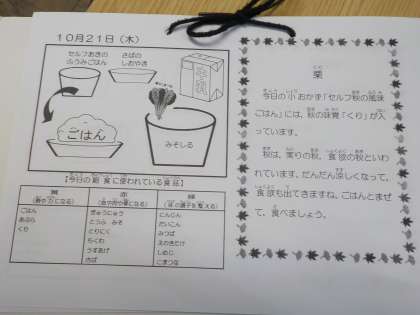 10月21日(木)
セルフあきの
ふうみごはん
さばの
しおやき
ごはん
みそしる
【今日の給食に使われている食品】
黄
(熱や力になる)
赤
(血や肉や骨になる)
緑
(体の調子を整える)
ごはん
あぶら
くり
ぎゅうにゅう
とうふ みそ
とりにく
ちくわ
うすあげ
さば
にんじん
だいこん
みつば
えのきだけ
しめじ
こまつな
栗
今日の小おかず「セルフ秋の風味
ごはん」には、秋の味覚「くり」が入
っています。
秋は、実りの秋、食欲の秋といわ
れています。だんだん涼しくなって、
食欲も出てきますね。ごはんとまぜ
て、食べましょう。